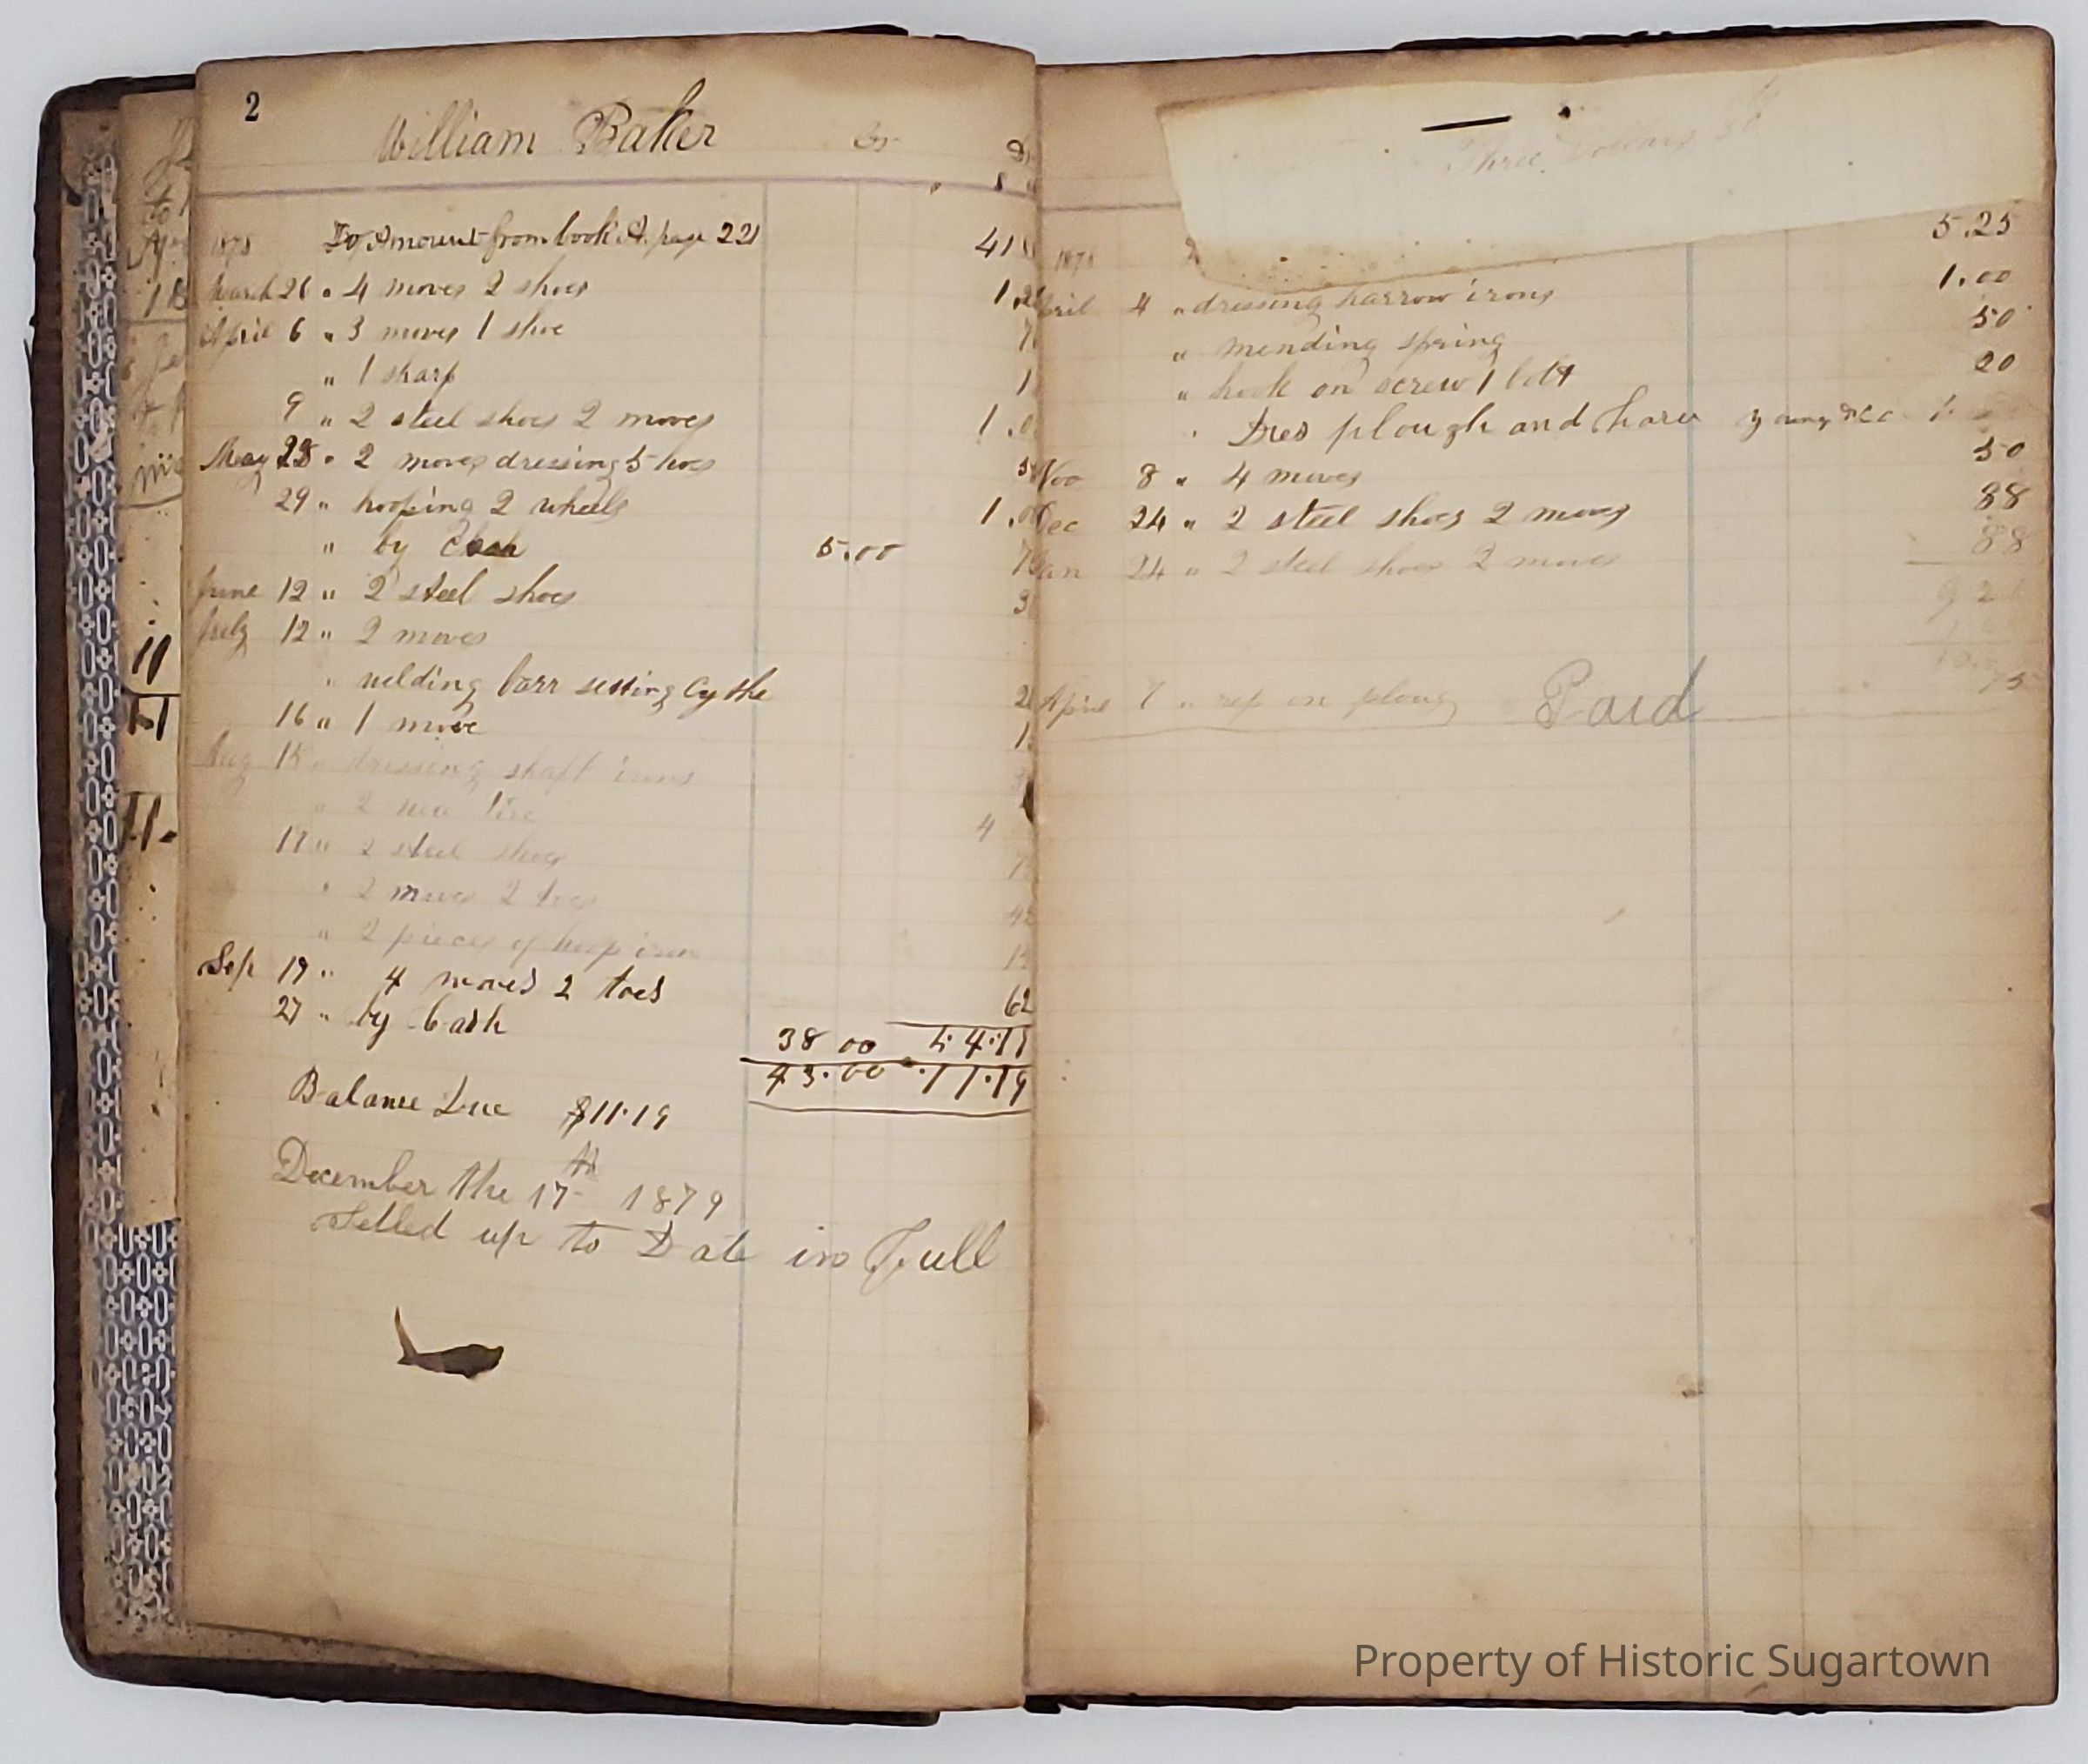 2
William Baker Cr Dr
1878 To Amount from book A. page 221 41
March 26 " 4 moves 2 shoes 1.
April 6 " 3 moves 1 shoe 7
" 1 sharp 1
9 " 2 steel shoes 2 moves 1.0
May 28 " 2 moves dressing 5 hoes 5
29 " hooping 2 wheels 1.0
" by Cash 5.00 7
June 12 " 2 steel shoes 3
July 12 " 2 moves
" welding barr setting Cythe 2
16 " 1 move 1
Aug 15 " dressing shaft irons
" 2 new tire 4
17 " 2 steel shoes 7
" 2 moves 2 toes 42
" 2 pieces of hoop iron 1
Sep 19 " 4 moves 2 toes 62
27 " by Cash 38 00 54.19
43.00 .11.19
Balance Due $11.19
December the 17th 1879
Setled up to Date in Full
Three Dollars
1878 5.25
April 4 " dressing harrow irons 1.00
" mending spring 50
" hook on screw 1 bolt 20
" Dres plough and Share
Nov 8 " 4 moves 50
Dec 24 " 2 steel shoes 2 moves 88
Jan 24 " 2 steel shoes 2 moves 88
April 7 " rep on ploug Paid
Property of Historic Sugartown